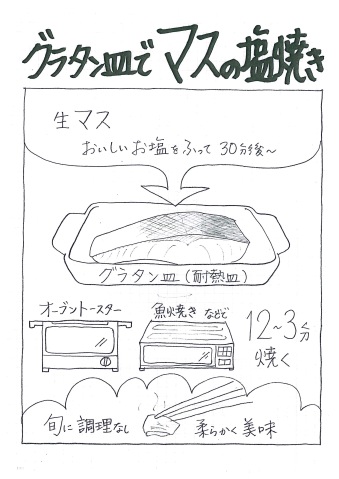 グラタン皿でマスの塩焼き
生マス
おいしいお塩をふって30分後～
グラタン皿(耐熱皿)
オーブントースター
魚焼きなどで
12～3分
焼く
旬に調理なし
柔らかく美味